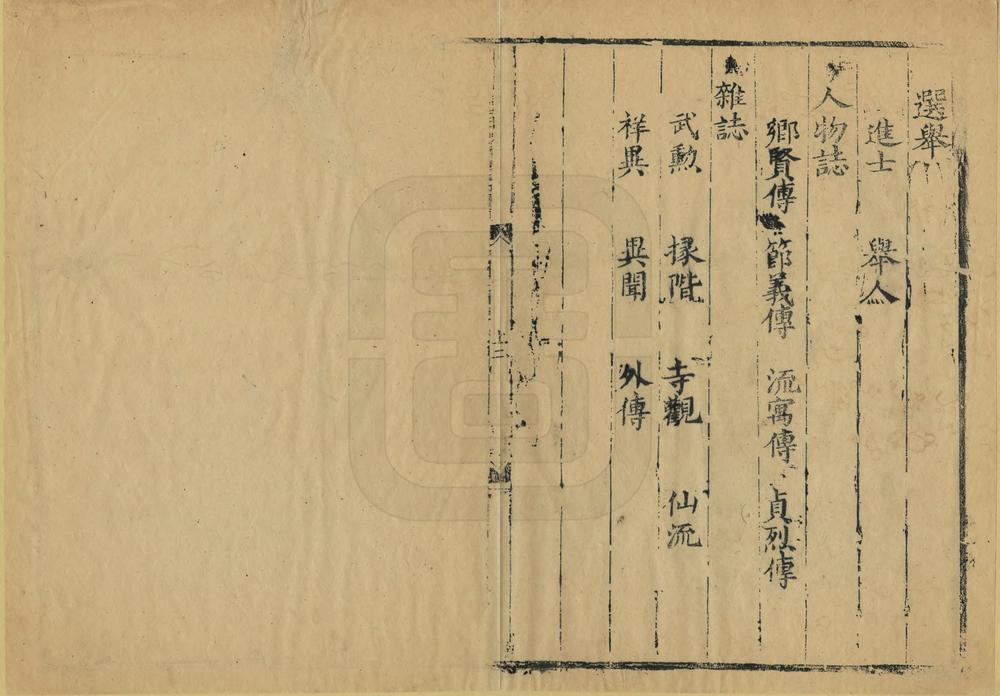 選舉
進士 舉人
人物誌
鄉賢傳 節義傳 流寓傳 貞烈傳
雜誌
武勲 掾階 寺觀 仙流
祥異 異聞 外傳
十二